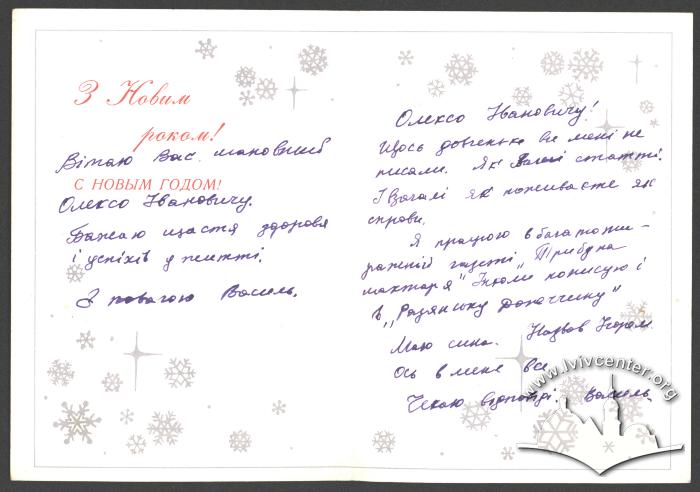 З Новим
роком!
Вітаю Вас шановний
С НОВЫМ ГОДОМ!
Олексо Івановичу.
Бажаю щастя здоровя
і успіхів у житті.
З повагою Василь.
Олексо Івановичу!
Щось довгенько ви мені не
писали. Як Ваші статті.
І взагалі як поживаєте як
справи.
Я працюю в багатоти-
ражній газеті "Трибуна
шахтаря" Інколи пописую і
в "Радянську Донеччину"
Маю сина. Назвав Ігорем
Ось в мене все.
Чекаю відповіді. Василь.
www.lvivcenter.org